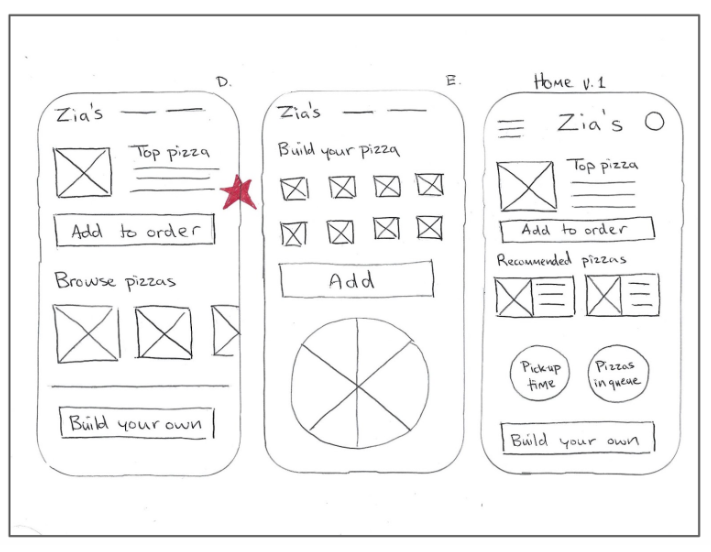 D.
Zia's
Top pizza
Add to order
Browse pizzas
Build your own
E.
Zia's
Build your pizza
Add
Home v.1
Zia's
Top pizza
Add to order
Recommended pizzas
Pickup
time
Pizzas
in queue
Build your own